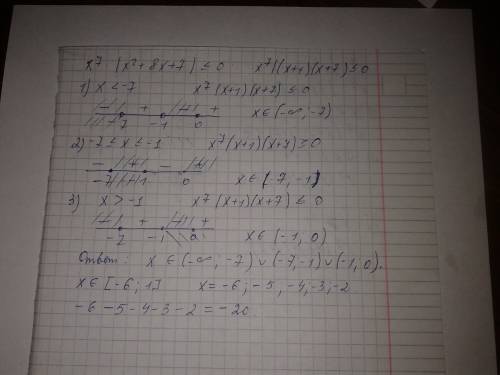 x⁷ |x²+8x+7| ≤ 0 x⁷|(x+1)(x+7)| ≤ 0
1) x < -7 x⁷(x+1)(x+7) ≤ 0
- + +
-7 -1 0 x∈(-∞, -7)
2) -7 ≤ x ≤ -1 x⁷(x+1)(x+7) ≥ 0
- -
-7 -1 0 x∈(-7, -1)
3) x > -1 x⁷(x+1)(x+7) ≤ 0
+ +
-7 -1 0 x∈(-1, 0)
Ответ: x ∈(-∞, -7)∪(-7,-1)∪(-1,0).
x∈[-6; 1] x= -6; -5, -4,-3,-2
-6 -5 -4 -3 -2 = -20